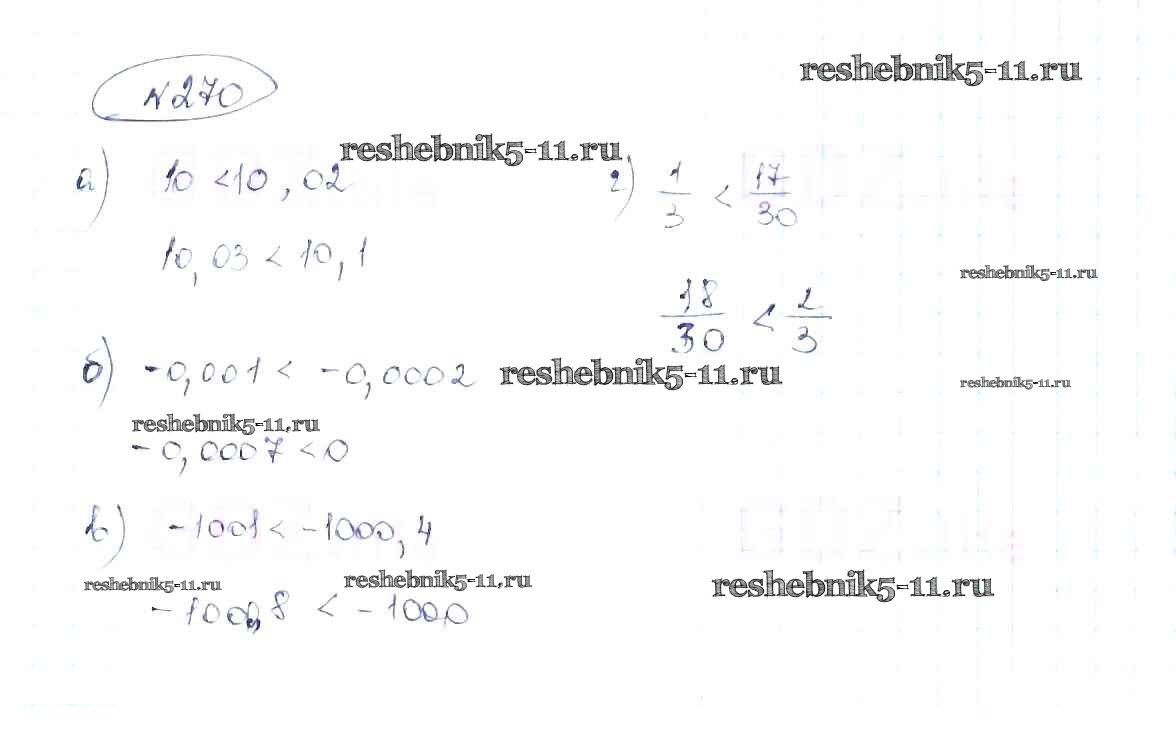 №270
reshebnik5-11.ru
reshebnik5-11.ru
а) 10 < 10,02
10,03 < 10,1
г) 1/3 < 17/30
reshebnik5-11.ru
18/30 < 2/3
б) -0,001 < -0,0002
reshebnik5-11.ru
reshebnik5-11.ru
reshebnik5-11.ru
-0,0007 < 0
в) -1001 < -1000,4
reshebnik5-11.ru
reshebnik5-11.ru
reshebnik5-11.ru
< -1000